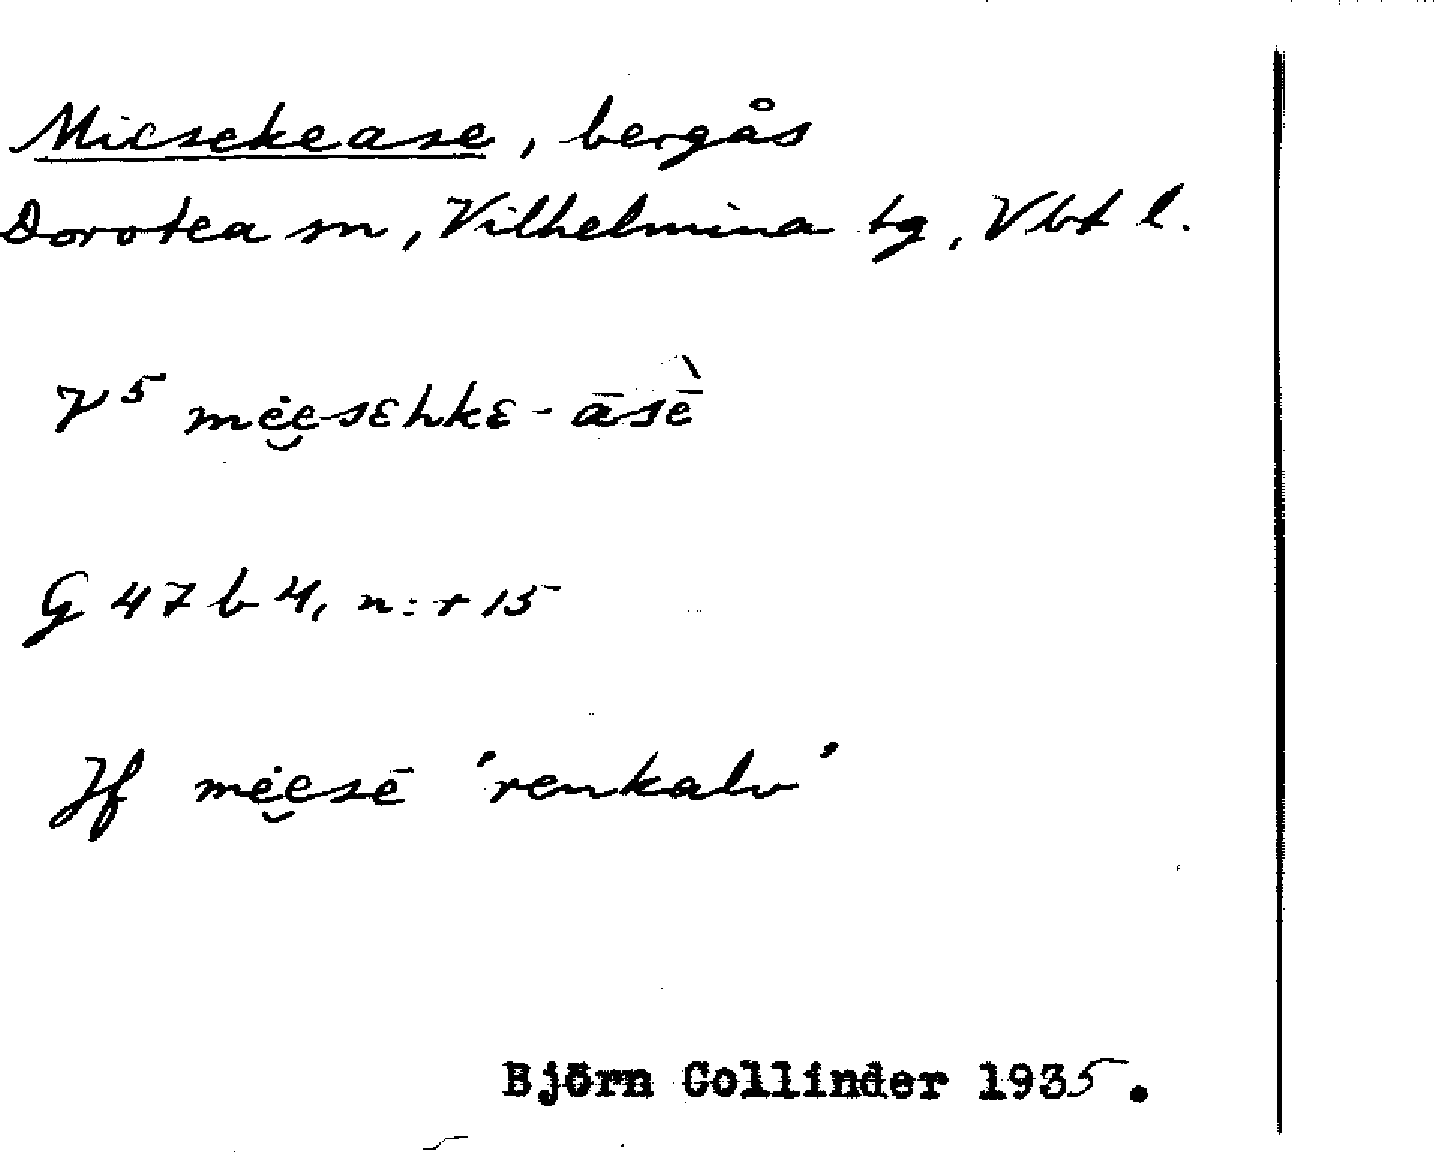 Miesekease, bergås
Dorotea sn, Vilhelmina tg, Vbt l.
V⁵ mėe̮sεhkε-āsḕ
G 47 b 4, n:r 15
Jf mėe̮sē 'renkalv'
Björn Collinder 1935.